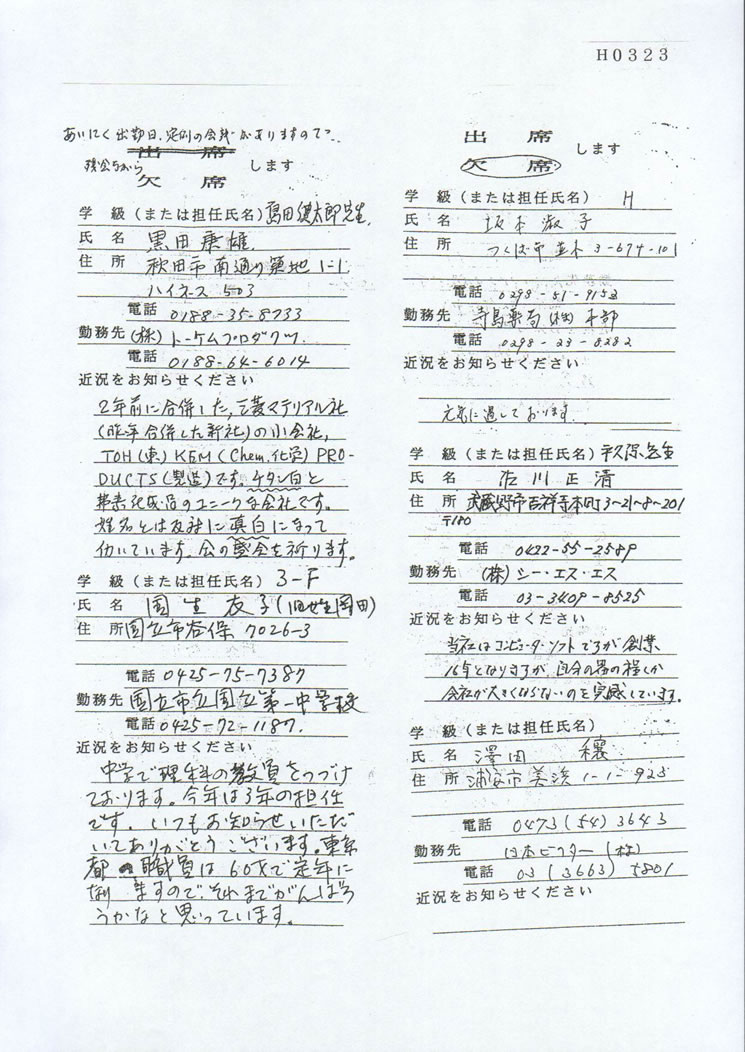 H0323
あいにく出勤日、定例の会議がありますので
出席
残念ながら
します
欠席
学 級(または担任氏名)島田健太郎先生
氏 名 黒田康雄
住 所 秋田市南通り築地1-1
ハイネス503
電話 0188-35-8733
勤務先 (株)トーケムプロダクツ
電話 0188-64-6014
近況をお知らせください
2年前に合併した、三菱マテリアル社
(昨年合併した新社)の小会社、
TOH(東)KEM(Chem.化学)PRO-
DUCTS(製造)です。チタン白と
弗素化成品のユニークな会社です。
姓名とは反対に真白になって
働いています。会の盛会を祈ります。
学 級(または担任氏名) 3-F
氏 名 園生衣子(旧姓岡田)
住 所 国立市谷保7026-3
電話 0425-75-7387
勤務先 国立市立国立第一中学校
電話 0425-72-1187.
近況をお知らせください
中学で理科の教員をつづけ
ております。今年は3年の担任
です。いつもお知らせいただ
いてありがとうございます。東京
都の職員は60才で定年に
なりますので、それまでがんばろ
うかなと思っています。
出席
します
欠席
学 級(または担任氏名) H
氏 名 坂本淑子
住 所 つくば市並木3-674-101
電話 0298-51-9152
勤務先 寺島薬局(株)本部
電話 0298-23-8282
近況をお知らせください
元気に過しております
学 級(または担任氏名)先生
氏 名 佐川正清
住 所 武蔵野市吉祥寺本町3-21-8-201
〒180
電話 0422-55-2589
勤務先 (株)シー・エス・エス
電話 03-3409-8525
近況をお知らせください
当社はコンピュータ・ソフトですが創業
16年となりますが、自分の器の程しか
会社が大きくならないのを実感しています。
学 級(または担任氏名)
氏 名 澤田 穰
住 所 浦安市美浜1-1-925
電話 0473(54)3643
勤務先 日本ビクター(株)
電話 03(3663)5801
近況をお知らせください